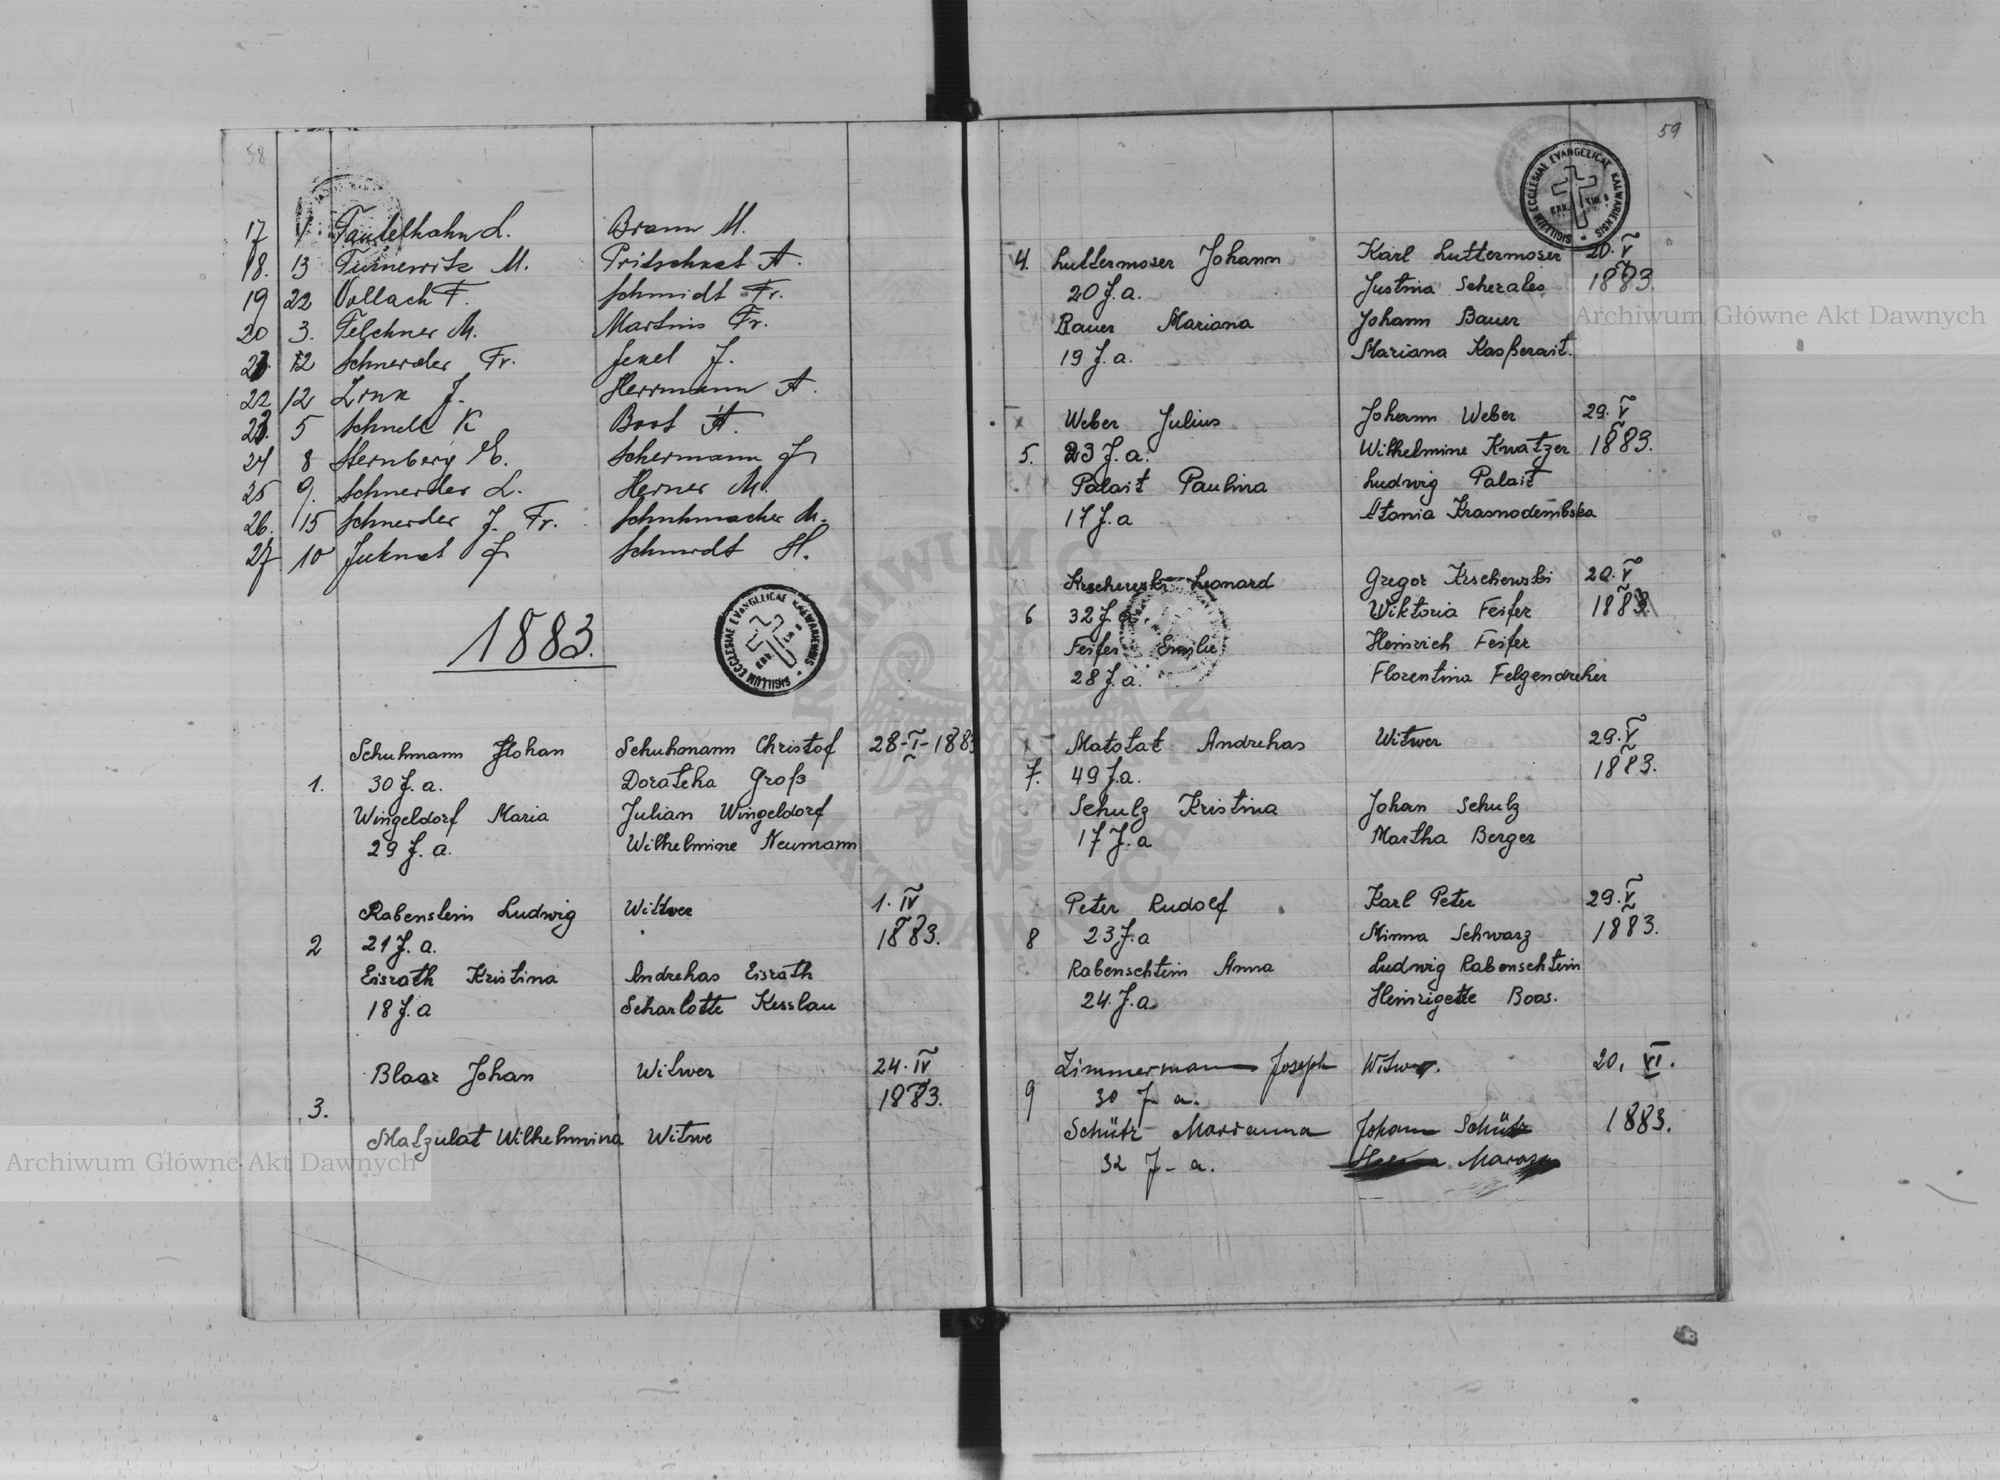 58
17 1 Tautelhahn L. Braun M.
18. 13 Turnewitz M. Pritschkat A.
19 22 Vollach F. Schmidt Fr.
20 3. Felchner M. Martins Fr.
21. 12 Schneider Fr. Jekel J.
22 12 Link J. Herrmann A.
23. 5 Schnell K Boos A.
24 8 Sternberg E. Schermann J
25 9. Schneider L. Herner M.
26. 15 Schneider J. Fr. Schuhmacher M.
27 10 Juknat J Schmidt H.
1883.
SIGILLUM ECCLESIAE EVANGELICAE KALWARIENSIS
Schuhmann Johan Schuhmann Christof 28-I-1883
1. 30 J. a. Dorateha Groß
Wingeldorf Maria Julian Wingeldorf
29 J. a. Wilhelmine Neumann
Rabenstein Ludwig Witwer 1. IV
2 21 J. a. 1883.
Eisrath Kristina Andrehas Eisrath
18 J. a Scharlotte Kesslau
Blaar Johan Witwer 24. IV
3. 1883.
Matzulat Wilhelmina Witwe
59
SIGILLUM ECCLESIAE EVANGELICAE KALWARIENSIS
4. Luttermoser Johann Karl Luttermoser 20. V
20 J. a. Justina Scherales 1883.
Bauer Mariana Johann Bauer
19 J. a. Mariana Kaßerait.
x Weber Julius Johann Weber 29. V
5. 23 J. a. Wilhelmine Kwatzer 1883.
Palait Paulina Ludwig Palait
17 J. a Atonia Krasnodembska
Krscherewski Leonard Gregor Krschewski 20. V
6 32 J. a. Wiktoria Feifer 1883.
Feifer Emilie Heinrich Feifer
28 J. a. Florentina Felgendreher
Matotat Andrehas Witwer 29. V
7. 49 J. a. 1883.
Schulz Kristina Johan Schulz
17 J. a Martha Berger
Peter Rudolf Karl Peter 29. V
8 23 J. a Minna Schwarz 1883.
Rabenschtein Anna Ludwig Rabenschtein
24. J. a. Heinrigette Boos.
Zimmermann Joseph Witwer. 20. VI.
9 30 J. a.
Schütz Marianna Johann Schütz 1883.
32 J. a.
Archiwum Główne Akt Dawnych
Archiwum Główne Akt Dawnych